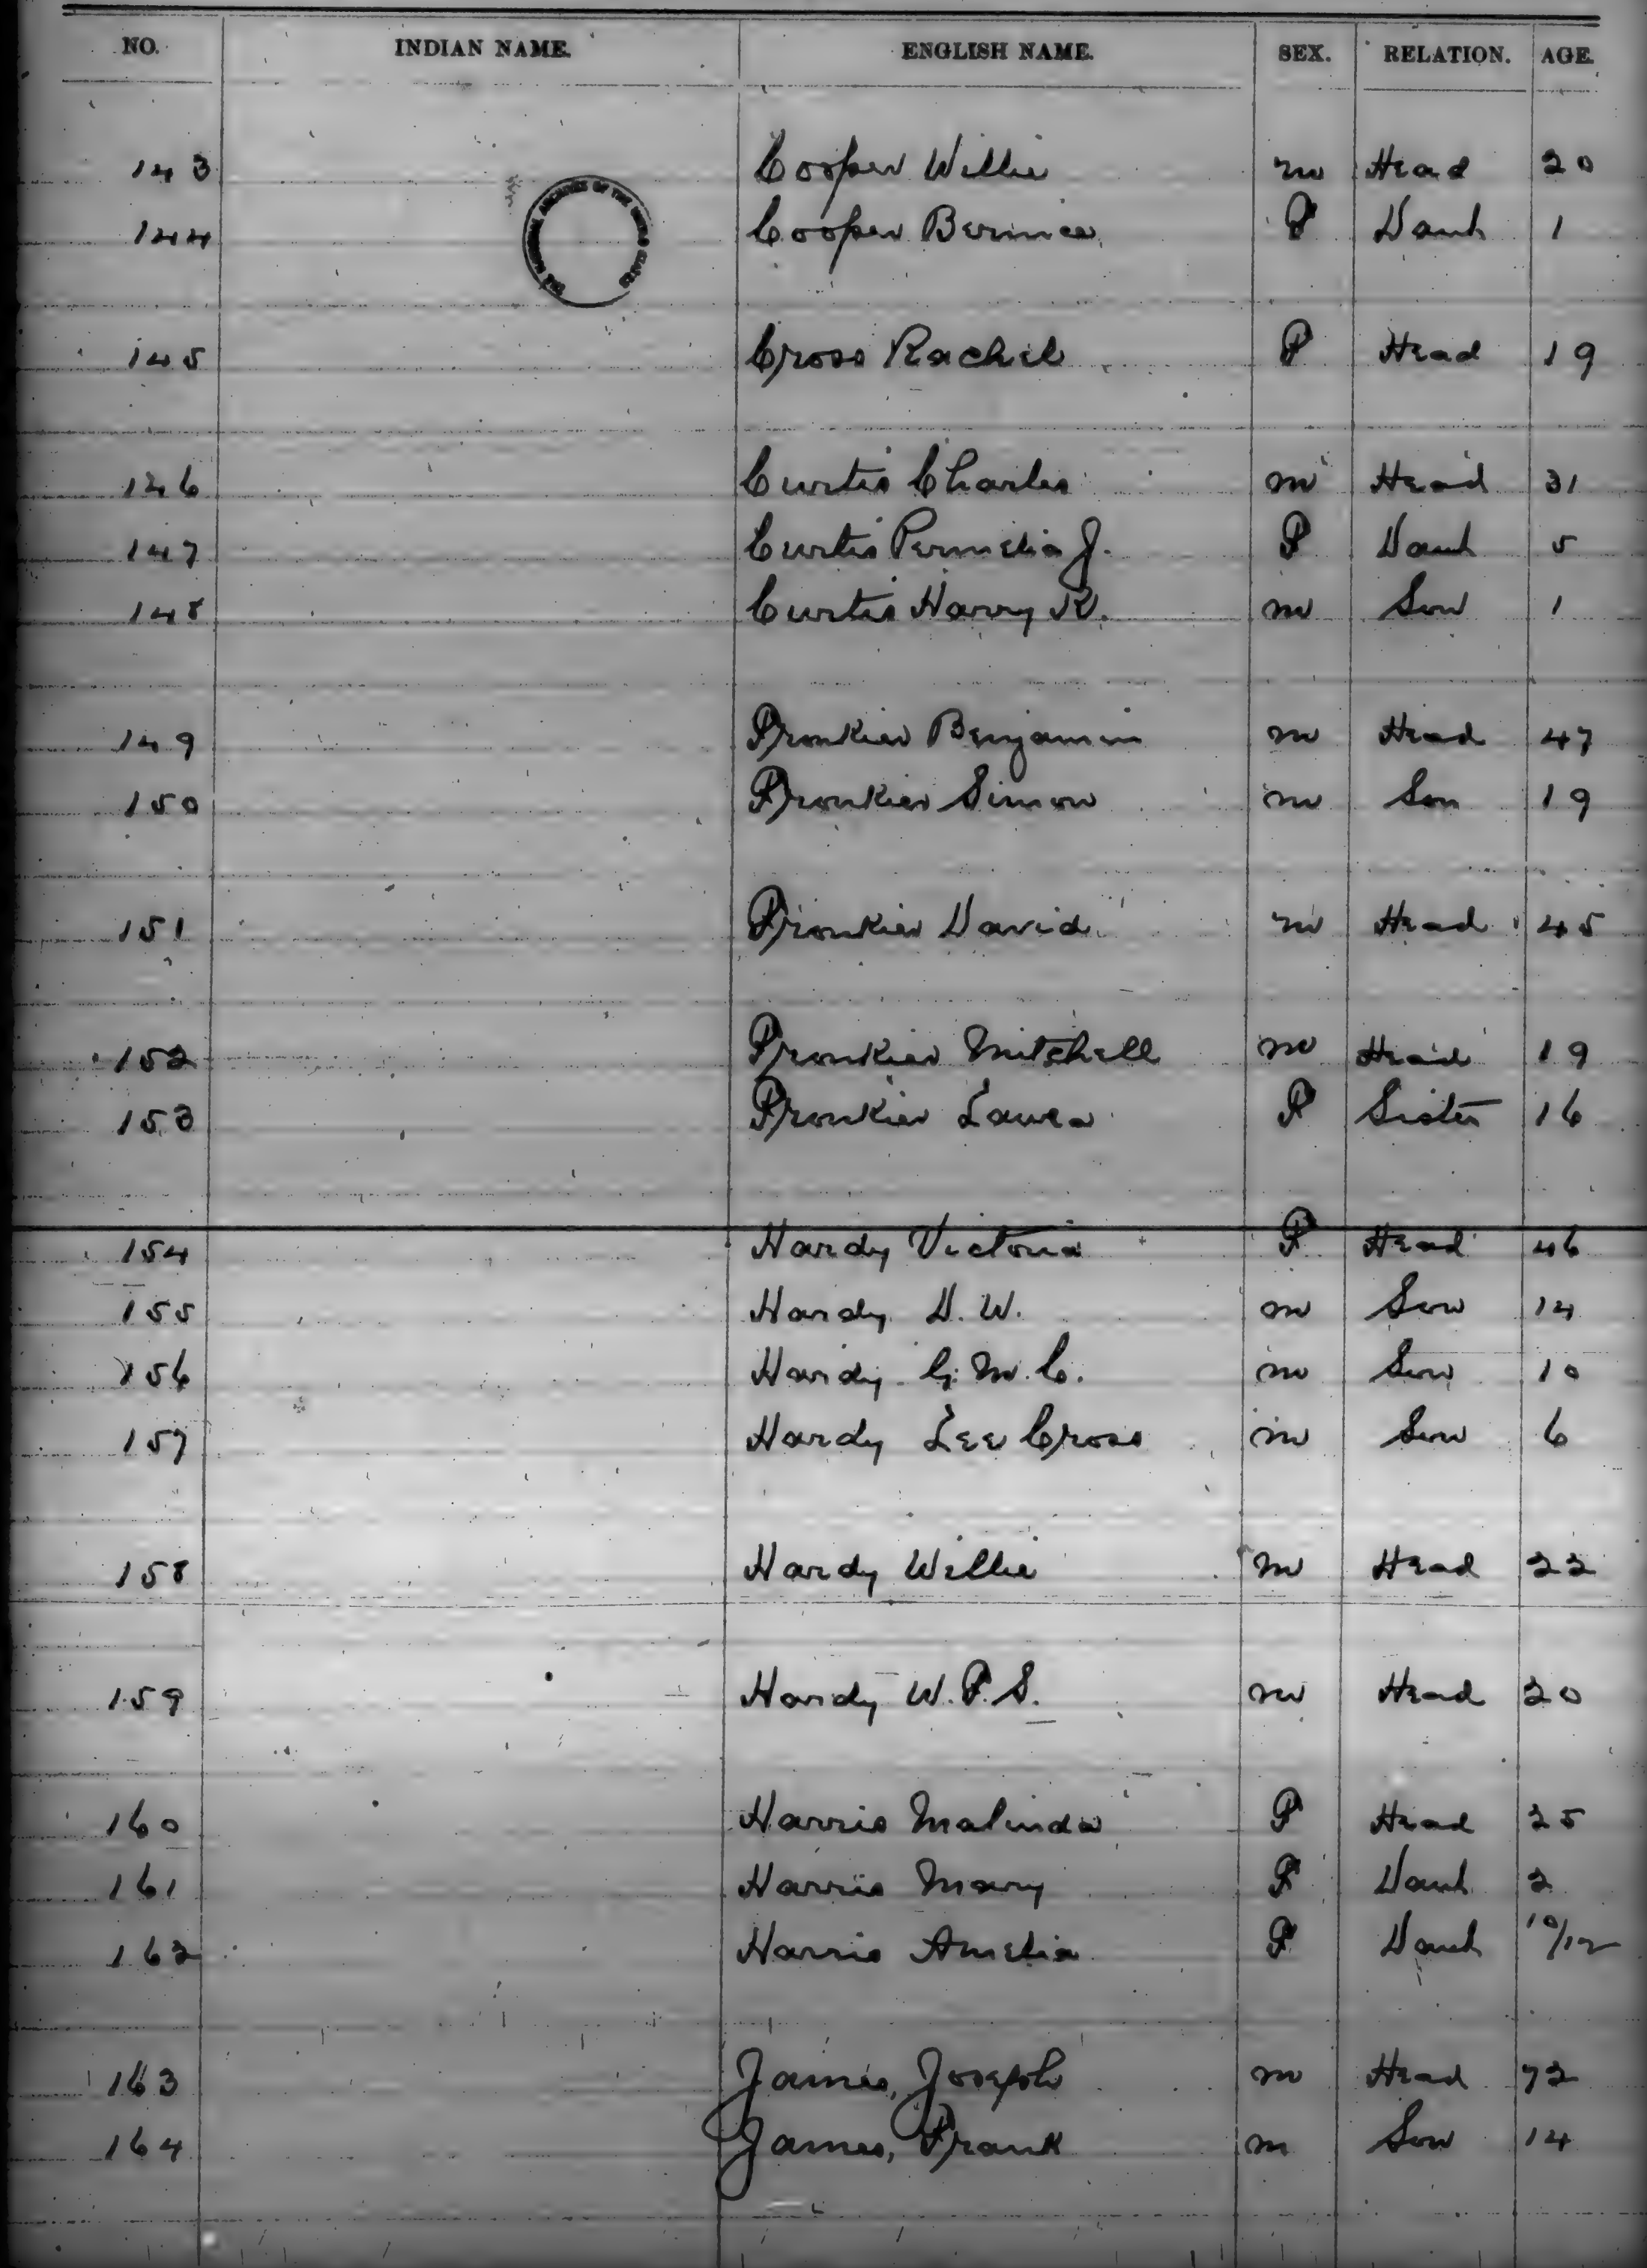 NO. INDIAN NAME. ENGLISH NAME. SEX. RELATION. AGE.
143 Cooper Willie m Head 20
THE NATIONAL ARCHIVES OF THE UNITED STATES
144 Cooper Bernice F Dauh 1
145 Cross Rachel F Head 19
146 Curtis Charles m Head 31
147 Curtis Permelia J. F Dauh 5
148 Curtis Harry K. m Son 1
149 Fronkier Benjamin m Head 47
150 Fronkier Simon m Son 19
151 Fronkier David m Head 45
152 Fronkier Mitchell m Head 19
153 Fronkier Laura F Sister 16
154 Hardy Victoria F Head 46
155 Hardy D. W. m Son 14
156 Hardy G. M. C. m Son 10
157 Hardy Lee Cross m Son 6
158 Hardy Willie m Head 22
159 Hardy W. F. S. m Head 20
160 Harris Malinda F Head 25
161 Harris Mary F Dauh 2
162 Harris Amelia F Dauh 10/12
163 James, Joseph m Head 72
164 James, Frank m Son 14